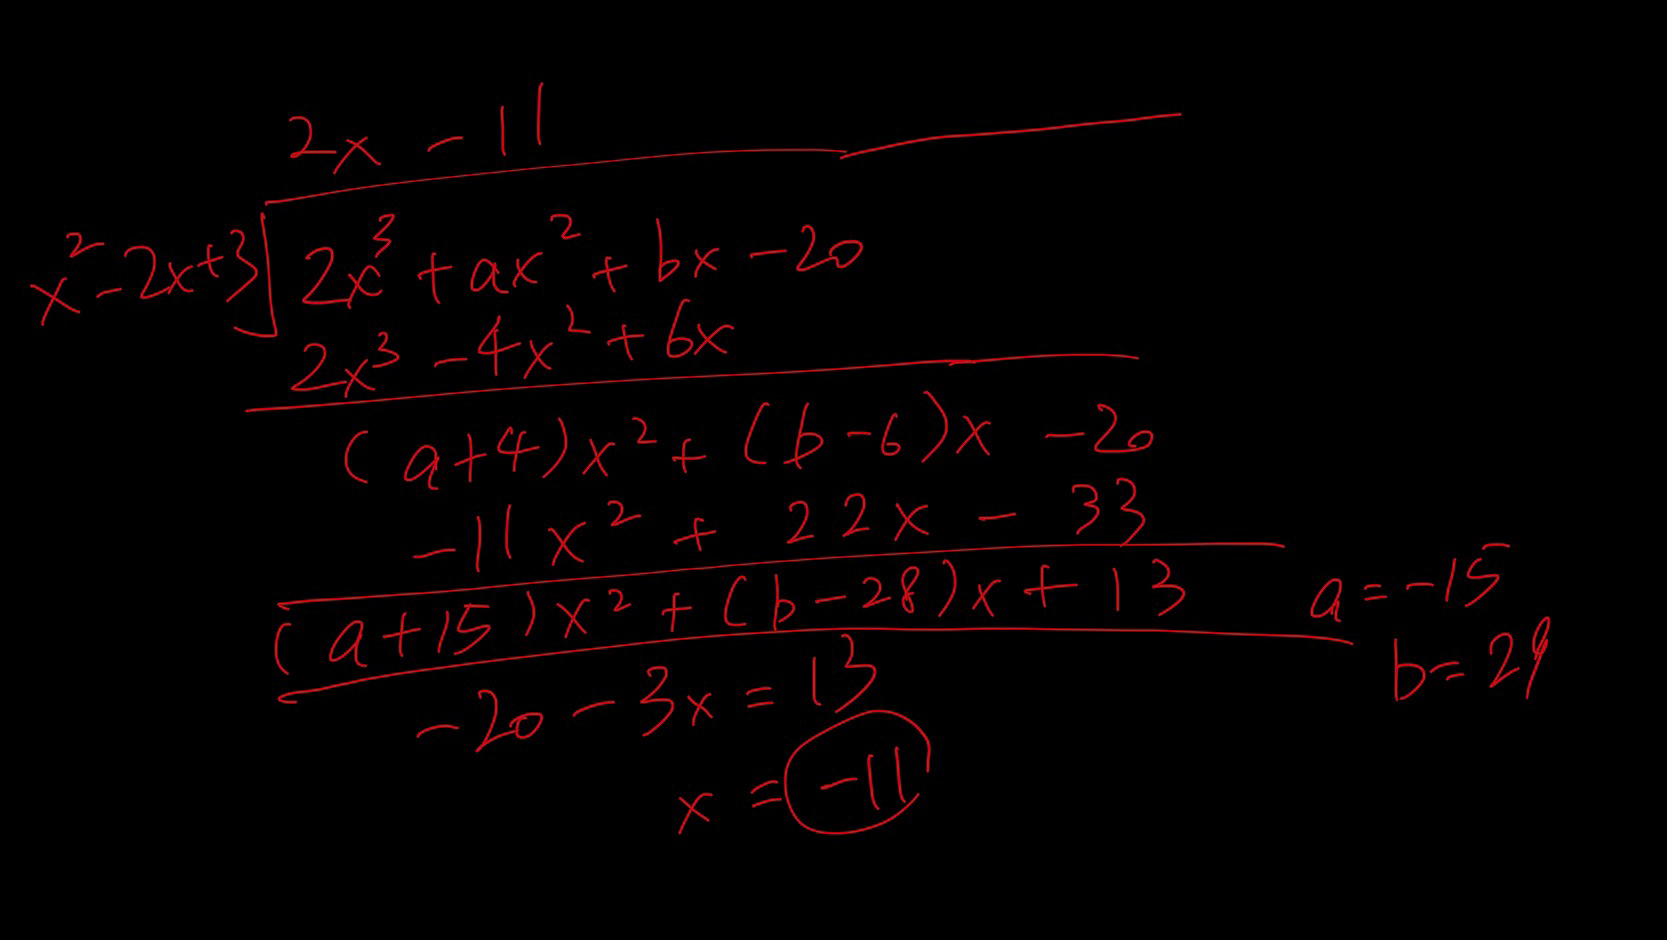 2x - 11
x² - 2x + 3 2x³ + ax² + bx - 20
2x³ - 4x² + 6x
(a+4)x² + (b-6)x - 20
-11x² + 22x - 33
(a+15)x² + (b-28)x + 13
a = -15
b = 29
-20 - 3x = 13
x = -11